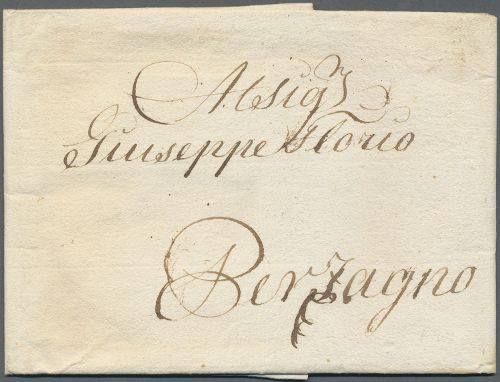 Al Sigr
Giuseppe Florio
Berzagno